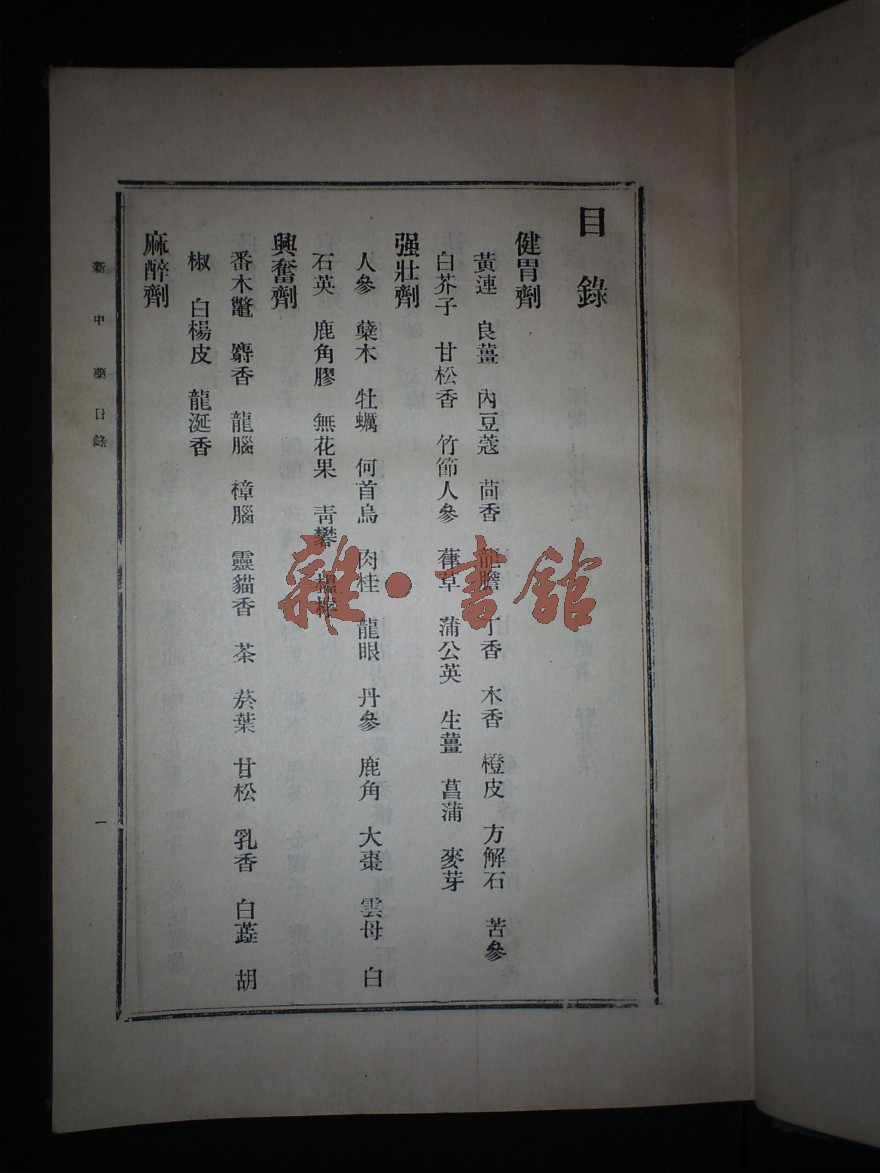 目錄
健胃劑
黃連 良薑 內豆蔻 茴香 龍膽 丁香 木香 橙皮 方解石 苦參
白芥子 甘松香 竹節人參 葎草 蒲公英 生薑 菖蒲 麥芽
强壯劑
人參 蘗木 牡蠣 何首烏 肉桂 龍眼 丹參 鹿角 大棗 雲母 白
石英 鹿角膠 無花果 靑礬
興奮劑
番木鼈 麝香 龍腦 樟腦 靈貓香 茶 菸葉 甘松 乳香 白 胡
椒 白楊皮 龍涎香
麻醉劑
新中藥目錄
一
雜·書館